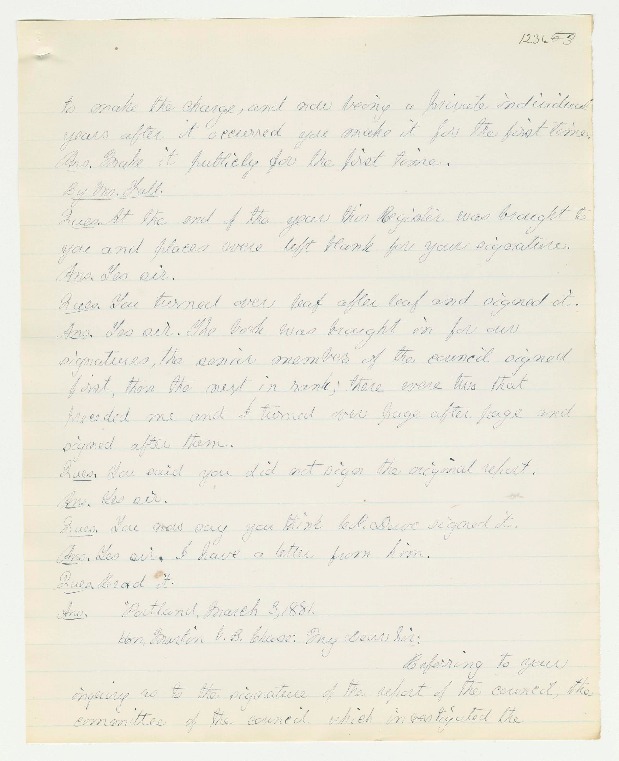 to make the charge, and now being a private individual
years after it occurred you make it for the first time.
Ans. I make it publicly for the first time.
By Mr. Hall.
Ques. At the end of the year this Register was brought to
you and places were left blank for your signature.
Ans. Yes sir.
Ques. You turned over leaf after leaf and signed it.
Ans. Yes sir. The book was brought in for our
signatures, the senior member of the council signed
first, then the next in rank; there were two that
preceded me and I turned over page after page and
signed after them.
Ques. You said you did not sign the original report.
Ans. Yes sir.
Ques. You now say you think signed it.
Ans. Yes sir. I have a letter from him.
Ques. Read it.
Ans. "Portland, March 3, 1881.
Hon. V. B. Chase. My dear Sir:
Referring to your
inquiry as to the signature of the report of the council, the
committee of the council which investigated the